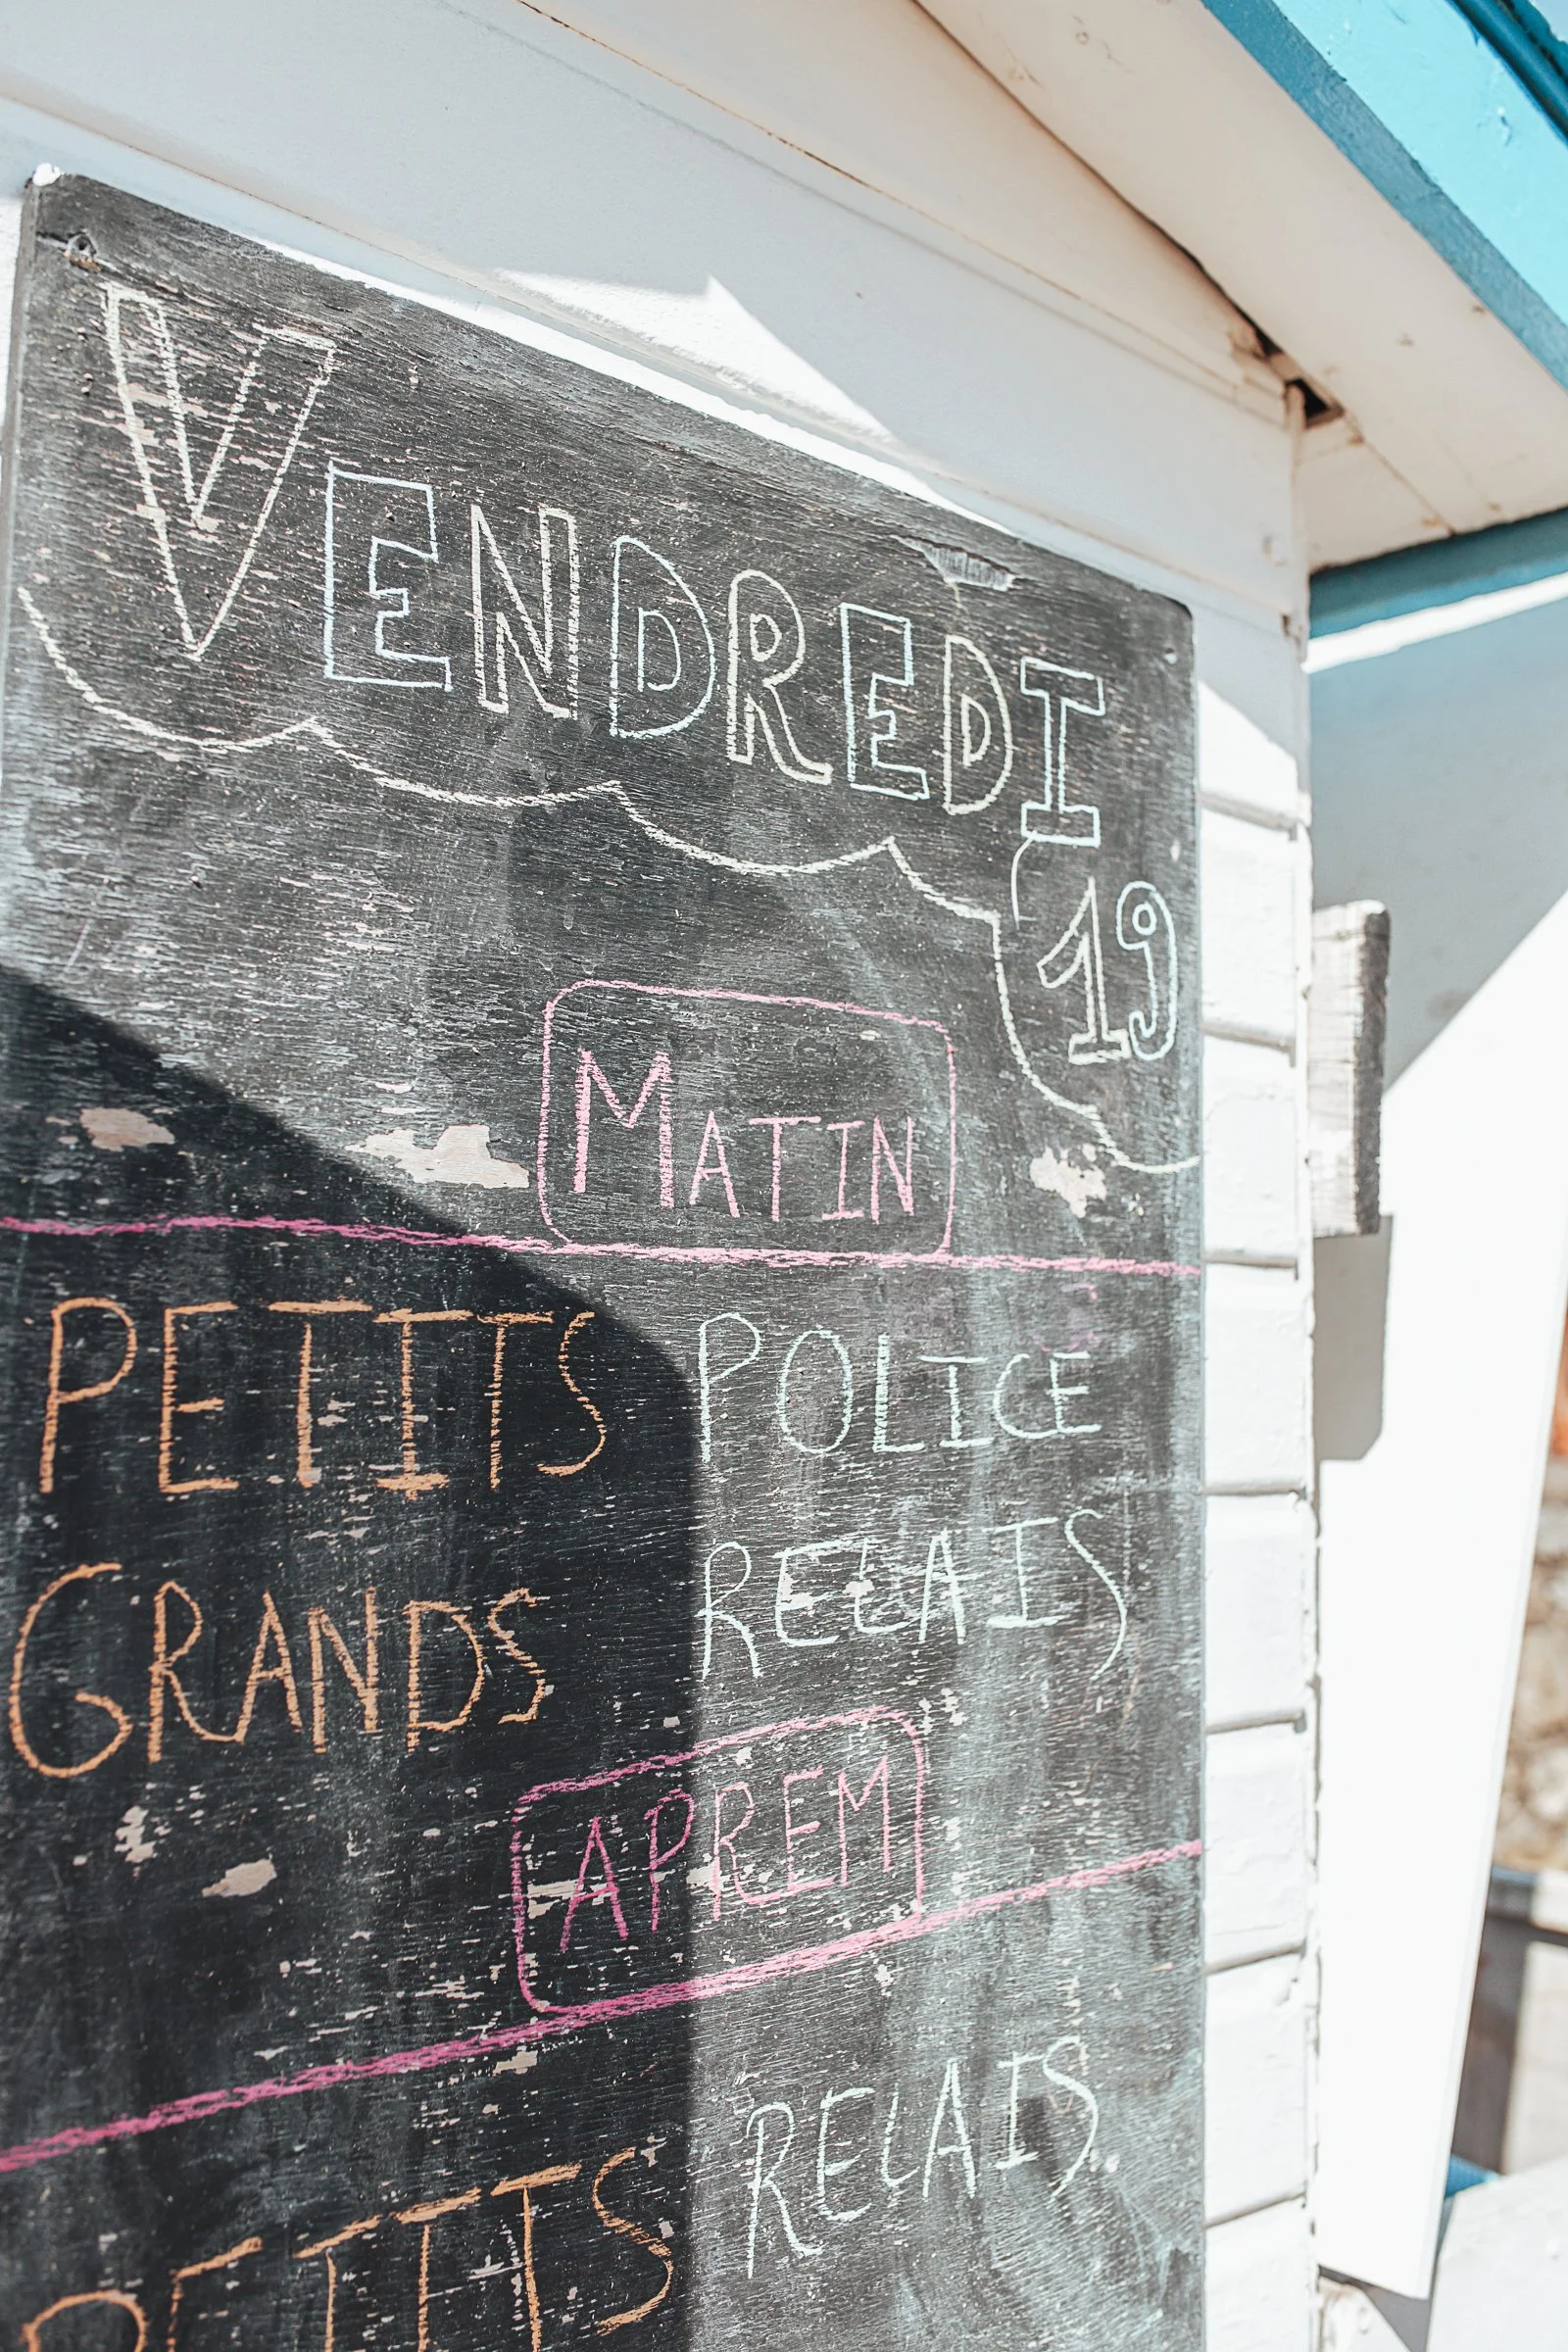 VENDREDI
19
MATIN
PETITS POLICE
GRANDS RELAIS
APREM
PETITS RELAIS